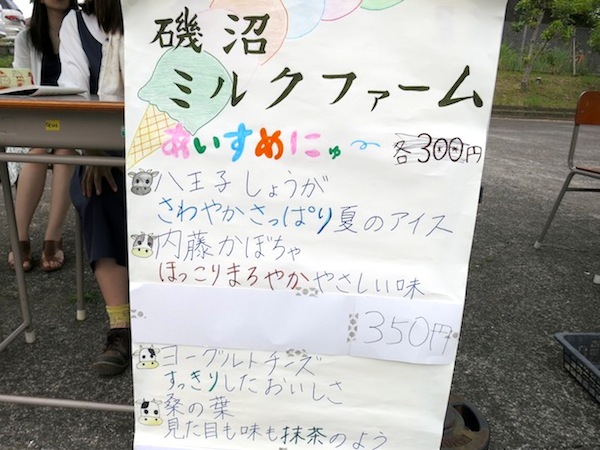 磯沼
ミルクファーム
あいすめにゅ〜
各300円
八王子しょうが
さわやかさっぱり夏のアイス
内藤かぼちゃ
ほっこりまろやかやさしい味
350円
ヨーグルトチーズ
すっきりしたおいしさ
桑の葉
見た目も味も抹茶のよう